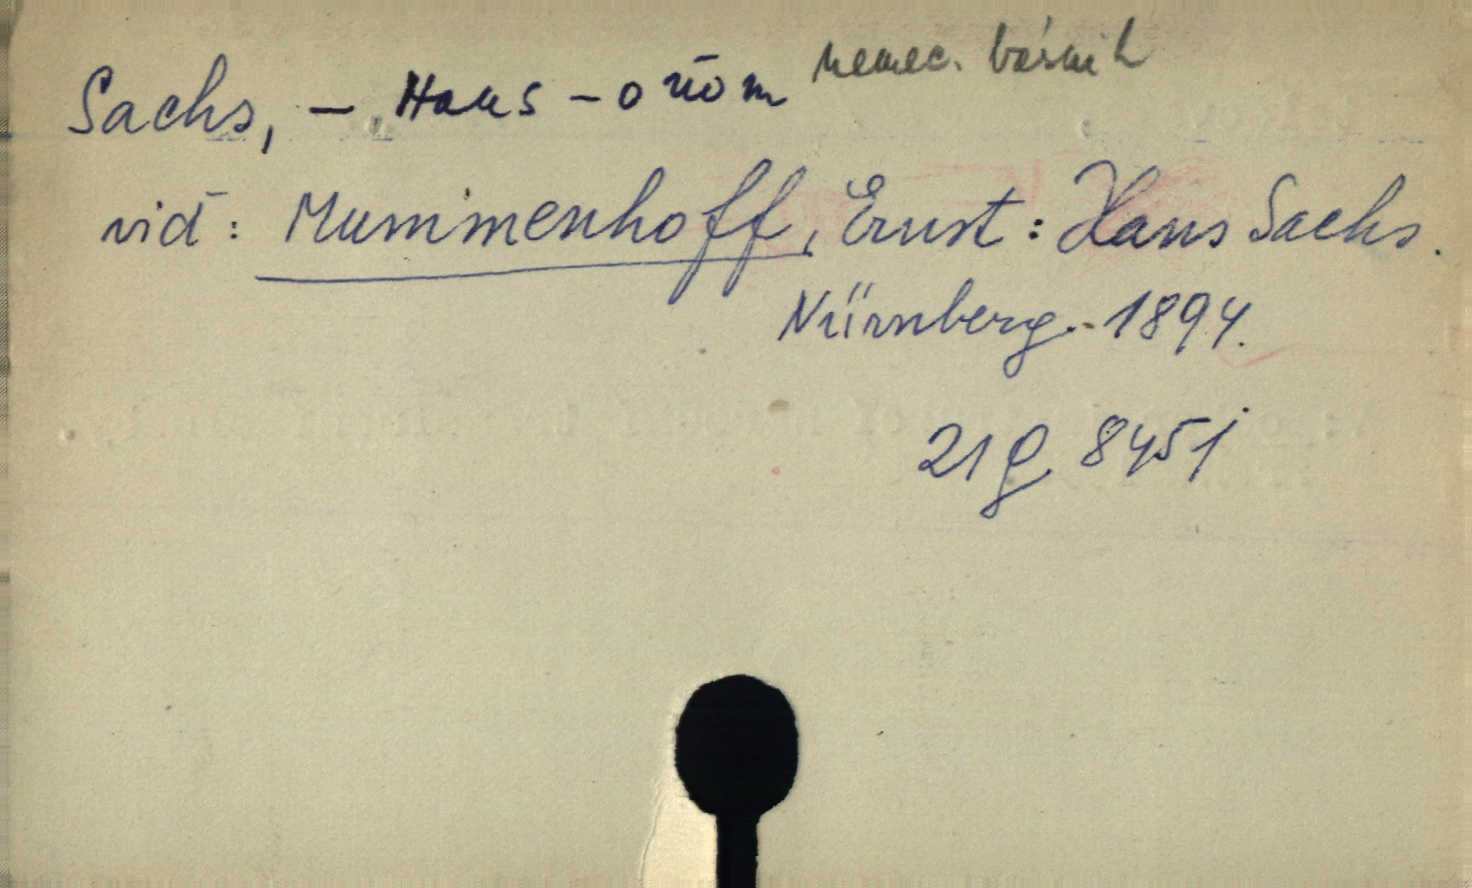 Sachs, - Hans - o ňom nemec. básnik
viď: Mummenhoff, Ernst: Hans Sachs.
Nürnberg. 1894.
21 g 8451